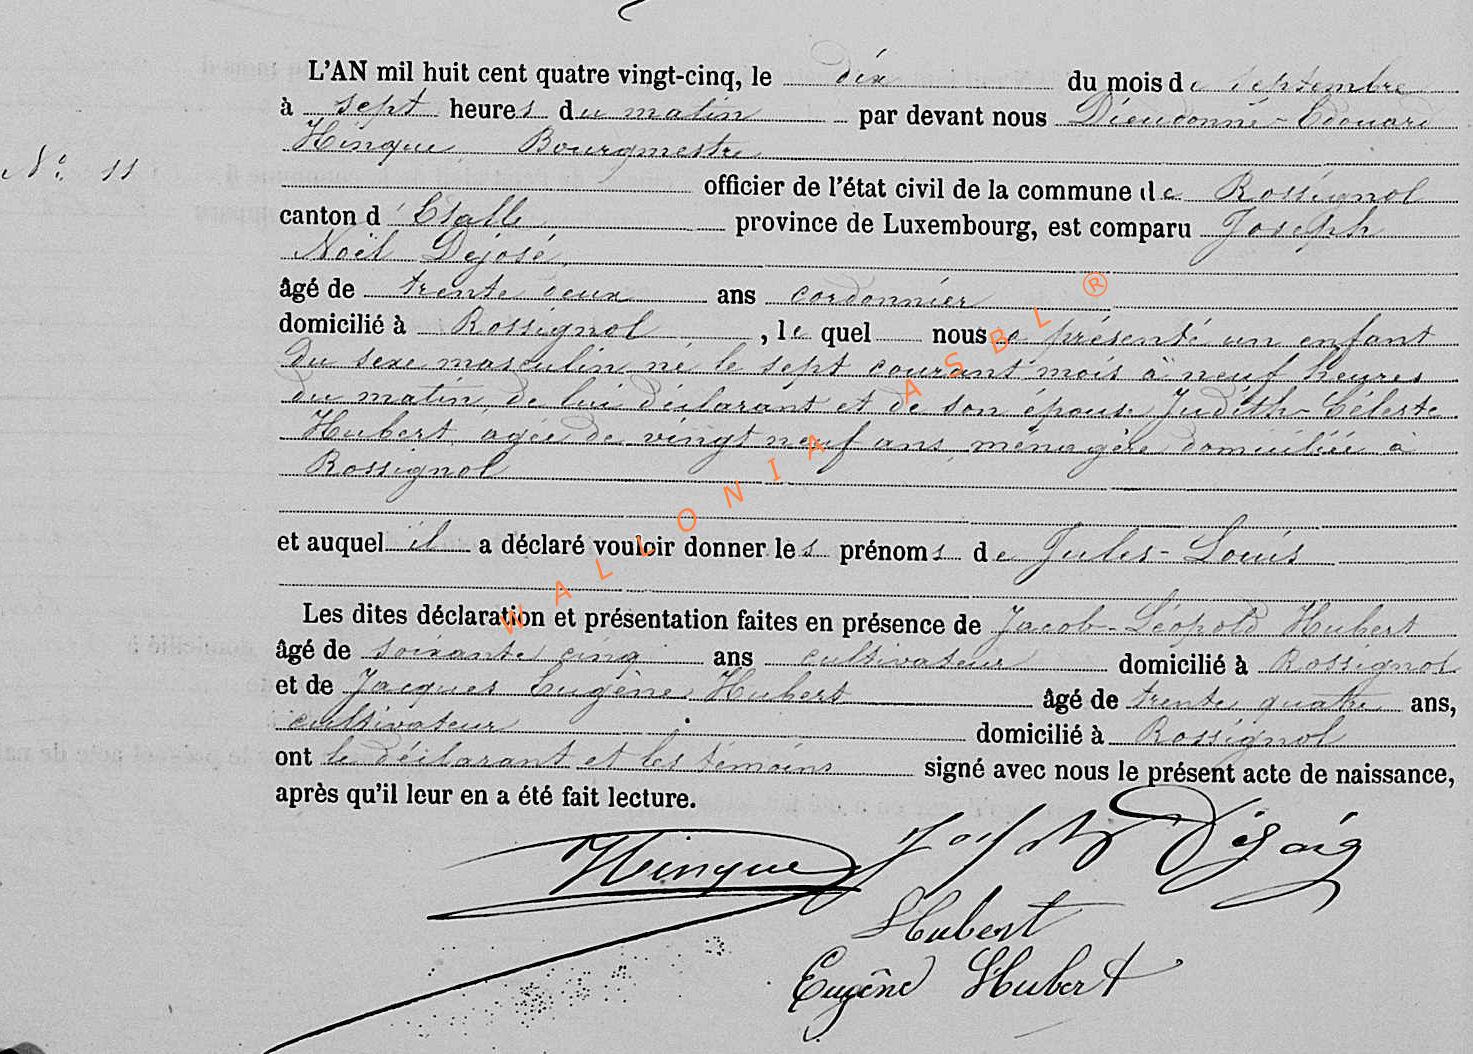 L'AN mil huit cent quatre vingt-cinq, le dix du mois de septembre
à sept heures du matin par devant nous Dieudonné-Edouard
Hinque, Bourgmestre
N.° 11
officier de l'état civil de la commune de Rossignol
canton d'Etalle province de Luxembourg, est comparu Joseph
Noël Dejosé,
âgé de trente deux ans cordonnier
domicilié à Rossignol, lequel nous a présenté un enfant
du sexe masculin né le sept courant mois à neuf heures
du matin, de lui déclarant et de son épouse Judith-Céleste
Hubert, agée de vingt neuf ans, ménagère domiciliée à
Rossignol
et auquel il a déclaré vouloir donner les prénoms de Jules-Louis
Les dites déclaration et présentation faites en présence de Jacob-Léopold Hubert
âgé de soixante cinq ans cultivateur domicilié à Rossignol
et de Jacques Eugène Hubert âgé de trente quatre ans,
cultivateur domicilié à Rossignol
ont le déclarant et les témoins signé avec nous le présent acte de naissance,
après qu'il leur en a été fait lecture.
Hinque
Hubert
Eugène Hubert
WALLONIA ASBL ®